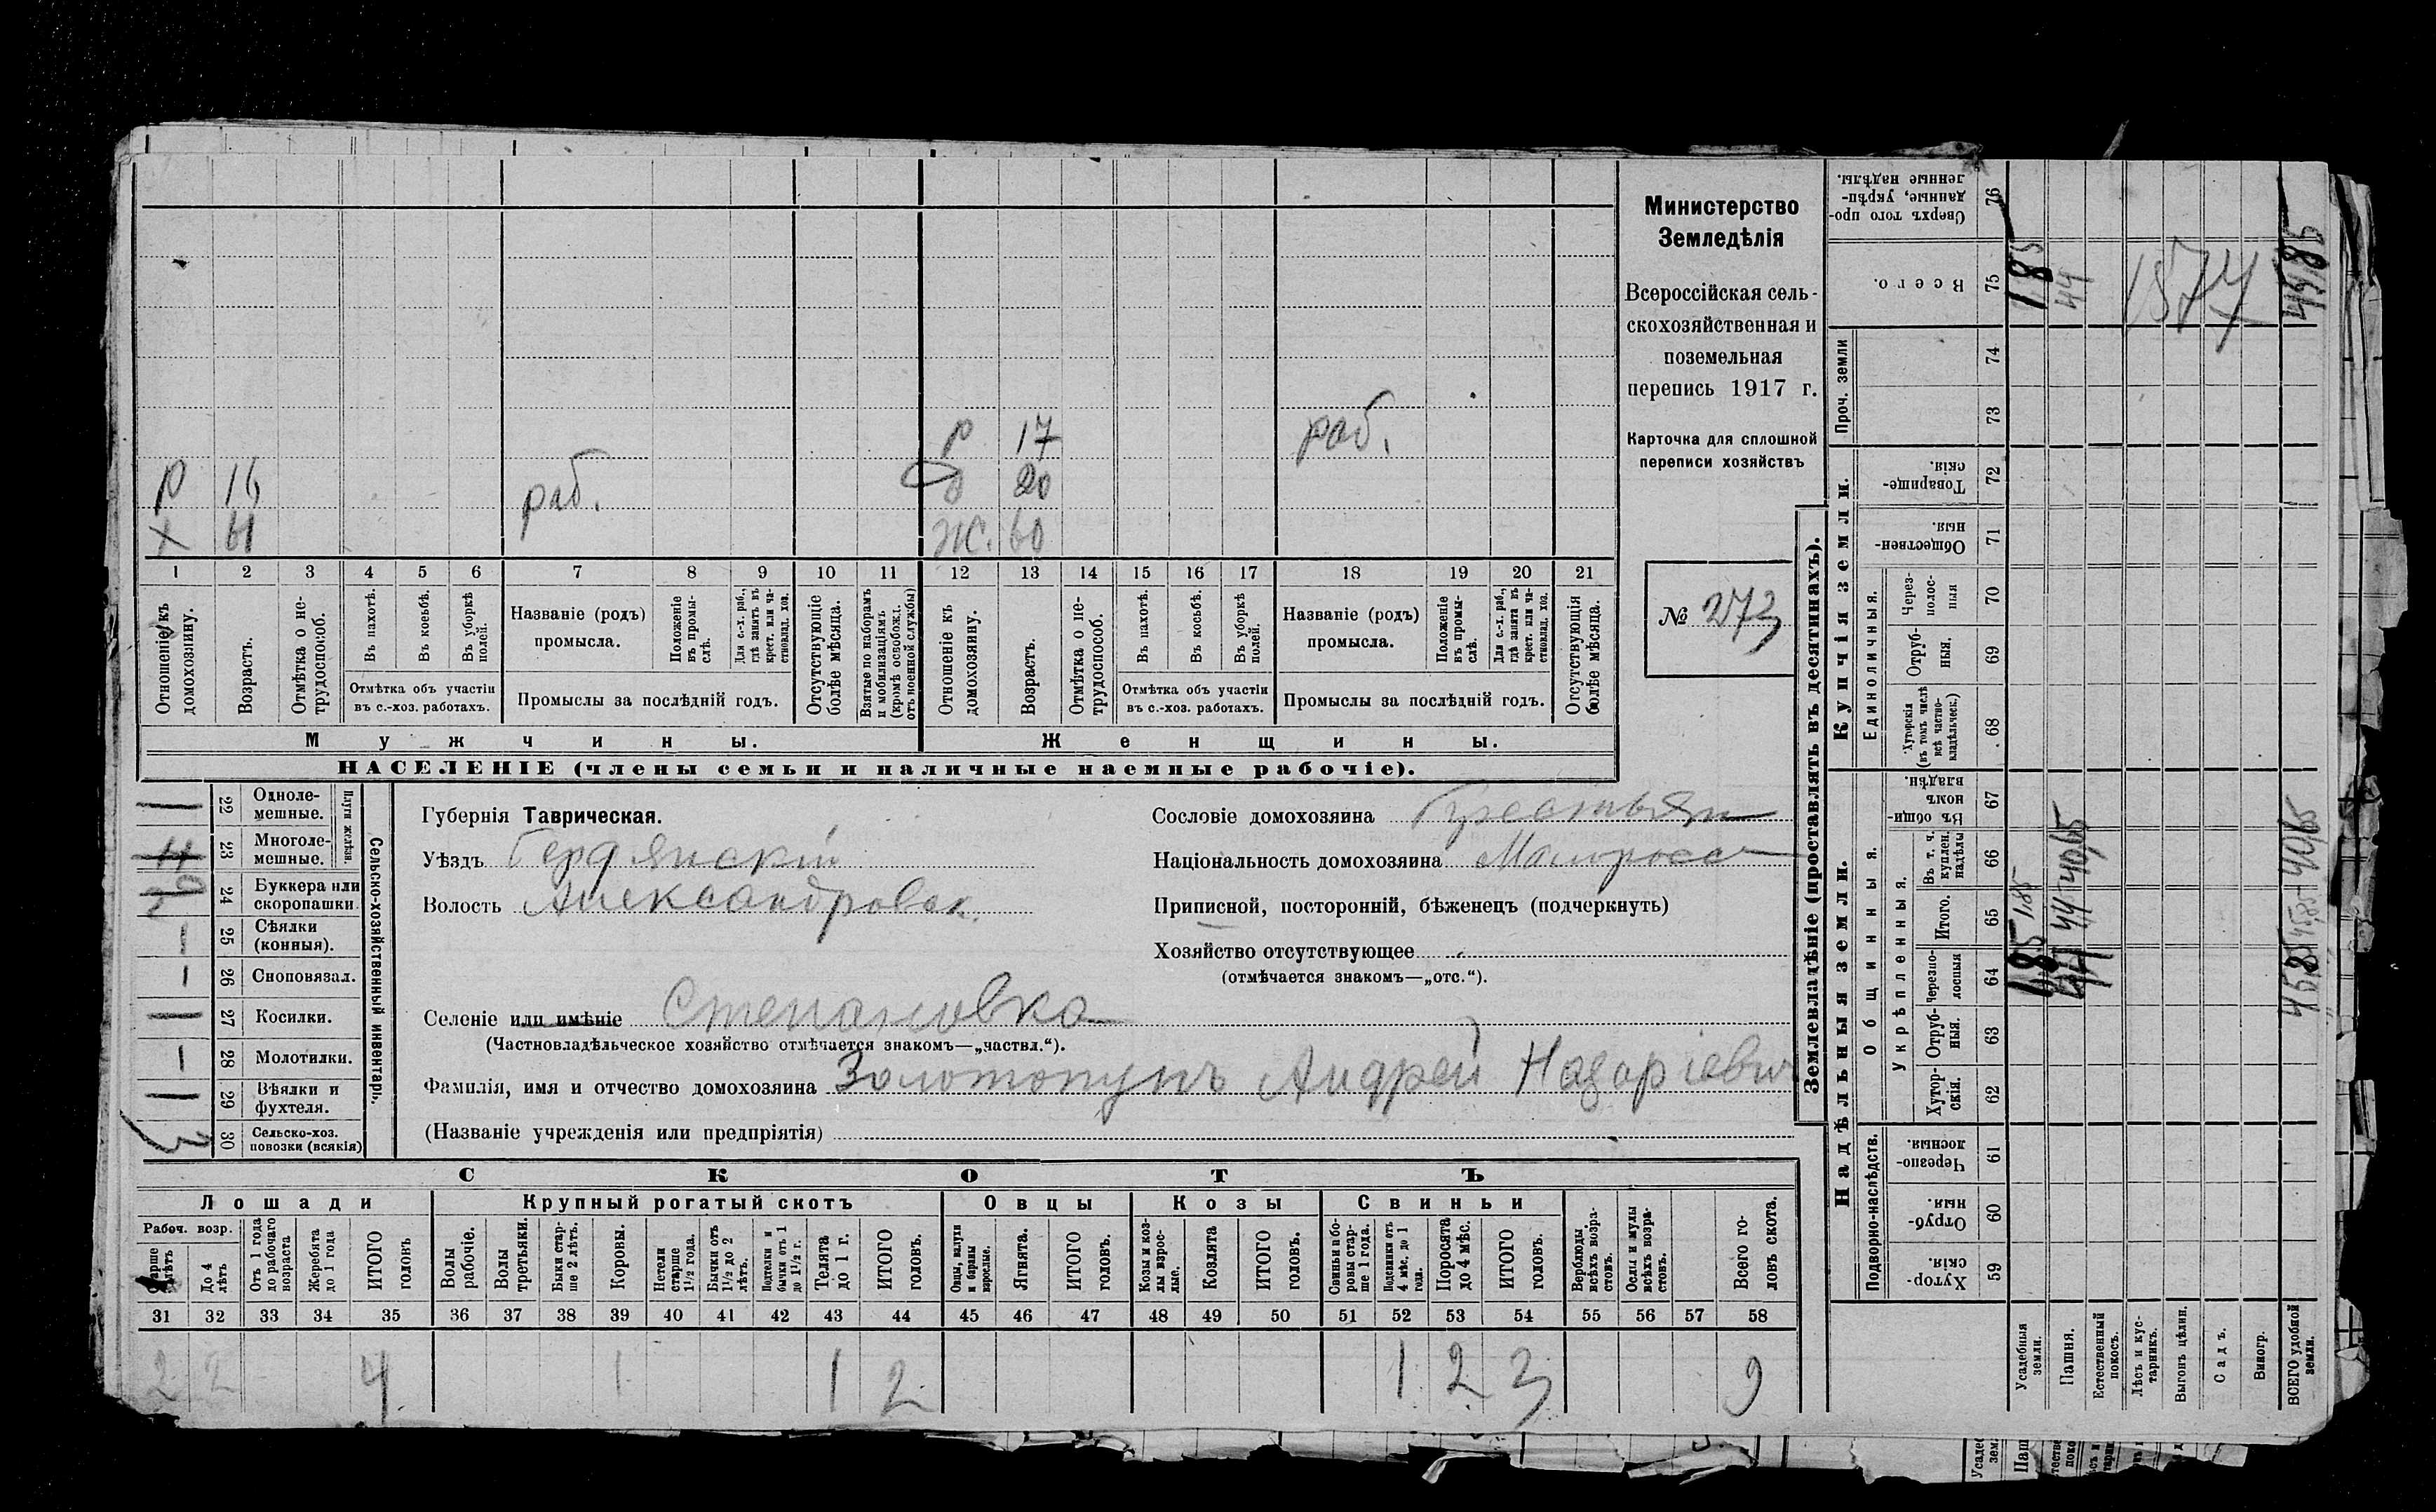 Министерство
Земледѣлія
Всероссійская сель-
скохозяйственная и
поземельная
перепись 1917 г.
Карточка для сплошной
переписи хозяйствъ
№ 273
р 17 раб.
р 16 раб. 20
х 61 ж. 60
1 2 3 4 5 6 7 8 9 10 11 12 13 14 15 16 17 18 19 20 21
Отношеніе къ домохозяину.
Возрастъ.
Отмѣтка о не-трудоспособ.
Въ пахотѣ.
Въ косьбѣ.
Въ уборкѣ полей.
Отмѣтка объ участіи
въ с.-хоз. работахъ.
Названіе (родъ)
промысла.
Положеніе въ промы-слѣ.
Для с.-х. раб., гдѣ занятъ въ крест. или ча-стновлад. хоз.
Промыслы за послѣдній годъ.
Отсутствующіе болѣе мѣсяца.
Взятые по наборамъ и мобилизаціямъ (кромѣ освобожд. отъ военной службы)
Отношеніе къ домохозяину.
Возрастъ.
Отмѣтка о не-трудоспособ.
Въ пахотѣ.
Въ косьбѣ.
Въ уборкѣ полей.
Отмѣтка объ участіи
въ с.-хоз. работахъ.
Названіе (родъ)
промысла.
Положеніе въ промы-слѣ.
Для с.-х. раб., гдѣ занята въ крест. или ча-стновлад. хоз.
Промыслы за послѣдній годъ.
Отсутствующія болѣе мѣсяца.
Мужчины. Женщины.
НАСЕЛЕНІЕ (члены семьи и наличные наемные рабочіе).
Сельско-хозяйственный инвентарь.
Плуги желѣзн.
22 Одноле-мешные.
23 Многоле-мешные.
24 Буккера или скоропашки.
25 Сѣялки (конныя).
1 26 Сноповязал.
27 Косилки.
1 28 Молотилки.
29 Вѣялки и фухтеля.
30 Сельско-хоз. повозки (всякія)
Губернія Таврическая.
Уѣздъ Бердянскій
Волость Александровск.
Селеніе или имѣніе Степановка
(Частновладѣльческое хозяйство отмѣчается знакомъ—„частвл.“).
Фамилія, имя и отчество домохозяина Золотопупъ Андрей Назаріевич
(Названіе учрежденія или предпріятія)
Сословіе домохозяина Крестьян
Національность домохозяина Малоросс
Приписной, посторонній, бѣженецъ (подчеркнуть)
Хозяйство отсутствующее
(отмѣчается знакомъ—„отс.“).
СКОТЪ
Лошади Крупный рогатый скотъ Овцы Козы Свиньи
Рабоч. возр.
До 4 лѣтъ
Отъ 1 года до рабочаго возраста
Жеребята до 1 года
ИТОГО головъ
Волы рабочіе.
Волы третьяки.
Быки стар-ше 2 лѣтъ.
Коровы.
Нетели старше 1½ года.
Бычки отъ 1½ до 2 лѣтъ.
Подтелки и бычки отъ 1 до 1½ г.
Телята до 1 г.
ИТОГО головъ.
Овцы, валухи и бараны взрослые.
Ягнята.
ИТОГО головъ.
Козы и коз-лы взрос-лые.
Козлята
ИТОГО головъ.
Свиньи и бо-ровы стар-ше 1 года.
Подсвинки отъ 4 мѣс. до 1 года.
Поросята до 4 мѣс.
ИТОГО головъ.
Верблюды всѣхъ возра-стовъ.
Ослы и мулы всѣхъ возра-стовъ.
Всего го-ловъ скота.
31 32 33 34 35 36 37 38 39 40 41 42 43 44 45 46 47 48 49 50 51 52 53 54 55 56 57 58
2 2 4 1 1 2 1 2 3 9
Землевладѣніе (проставлять въ десятинахъ).
Надѣльныя земли. Купчія земли. Проч. земли
Подворно-наслѣдств.
Общинныя.
Укрѣпленныя.
Единоличныя.
Хутор-скія. 59
Отруб-ныя. 60
Черезпо-лосныя. 61
Хутор-скія. 62
Отруб-ныя. 63
Черезпо-лосныя 64
Итого. 65
Въ т. ч. куплен. надѣлы 66
Въ общин-номъ владѣн. 67
Хуторскія (въ томъ числѣ всѣ частно-владѣльческ.) 68
Отруб-ныя. 69
Через-полос-ныя 70
Обществен-ныя. 71
Товарище-скія. 72
73
74
Всего. 75
Сверхъ того про-данные, укрѣп-ленные надѣлы. 76
Усадебныя земли. 185 185
Пашня. 44 44
Естественный покосъ.
Лѣсъ и кус-тарникъ.
Выгонъ цѣлин.
Садъ.
Виногр.
ВСЕГО удобной земли.
1574